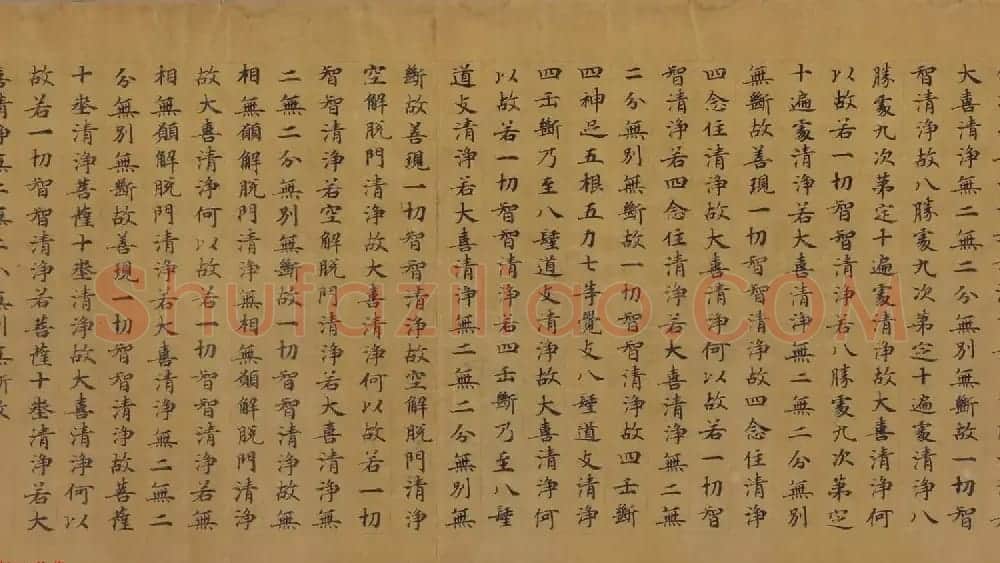 大喜清淨無二無二分無別無斷故一切智
智清淨故八勝處九次第定十遍處清淨八
勝處九次第定十遍處清淨故大喜清淨何
以故若一切智智清淨若八勝處九次第定
十遍處清淨若大喜清淨無二無二分無別
無斷故善現一切智智清淨故四念住清淨
四念住清淨故大喜清淨何以故若一切智
智清淨若四念住清淨若大喜清淨無二無
二分無別無斷故一切智智清淨故四正斷
四神足五根五力七等覺支八聖道支清淨
四正斷乃至八聖道支清淨故大喜清淨何
以故若一切智智清淨若四正斷乃至八聖
道支清淨若大喜清淨無二無二分無別無
斷故善現一切智智清淨故空解脫門清淨
空解脫門清淨故大喜清淨何以故若一切
智智清淨若空解脫門清淨若大喜清淨無
二無二分無別無斷故一切智智清淨故無
相無願解脫門清淨無相無願解脫門清淨
故大喜清淨何以故若一切智智清淨若無
相無願解脫門清淨若大喜清淨無二無二
分無別無斷故善現一切智智清淨故菩薩
十埊清淨菩薩十埊清淨故大喜清淨何以
故若一切智智清淨若菩薩十埊清淨若大
Shufaziliao.COM